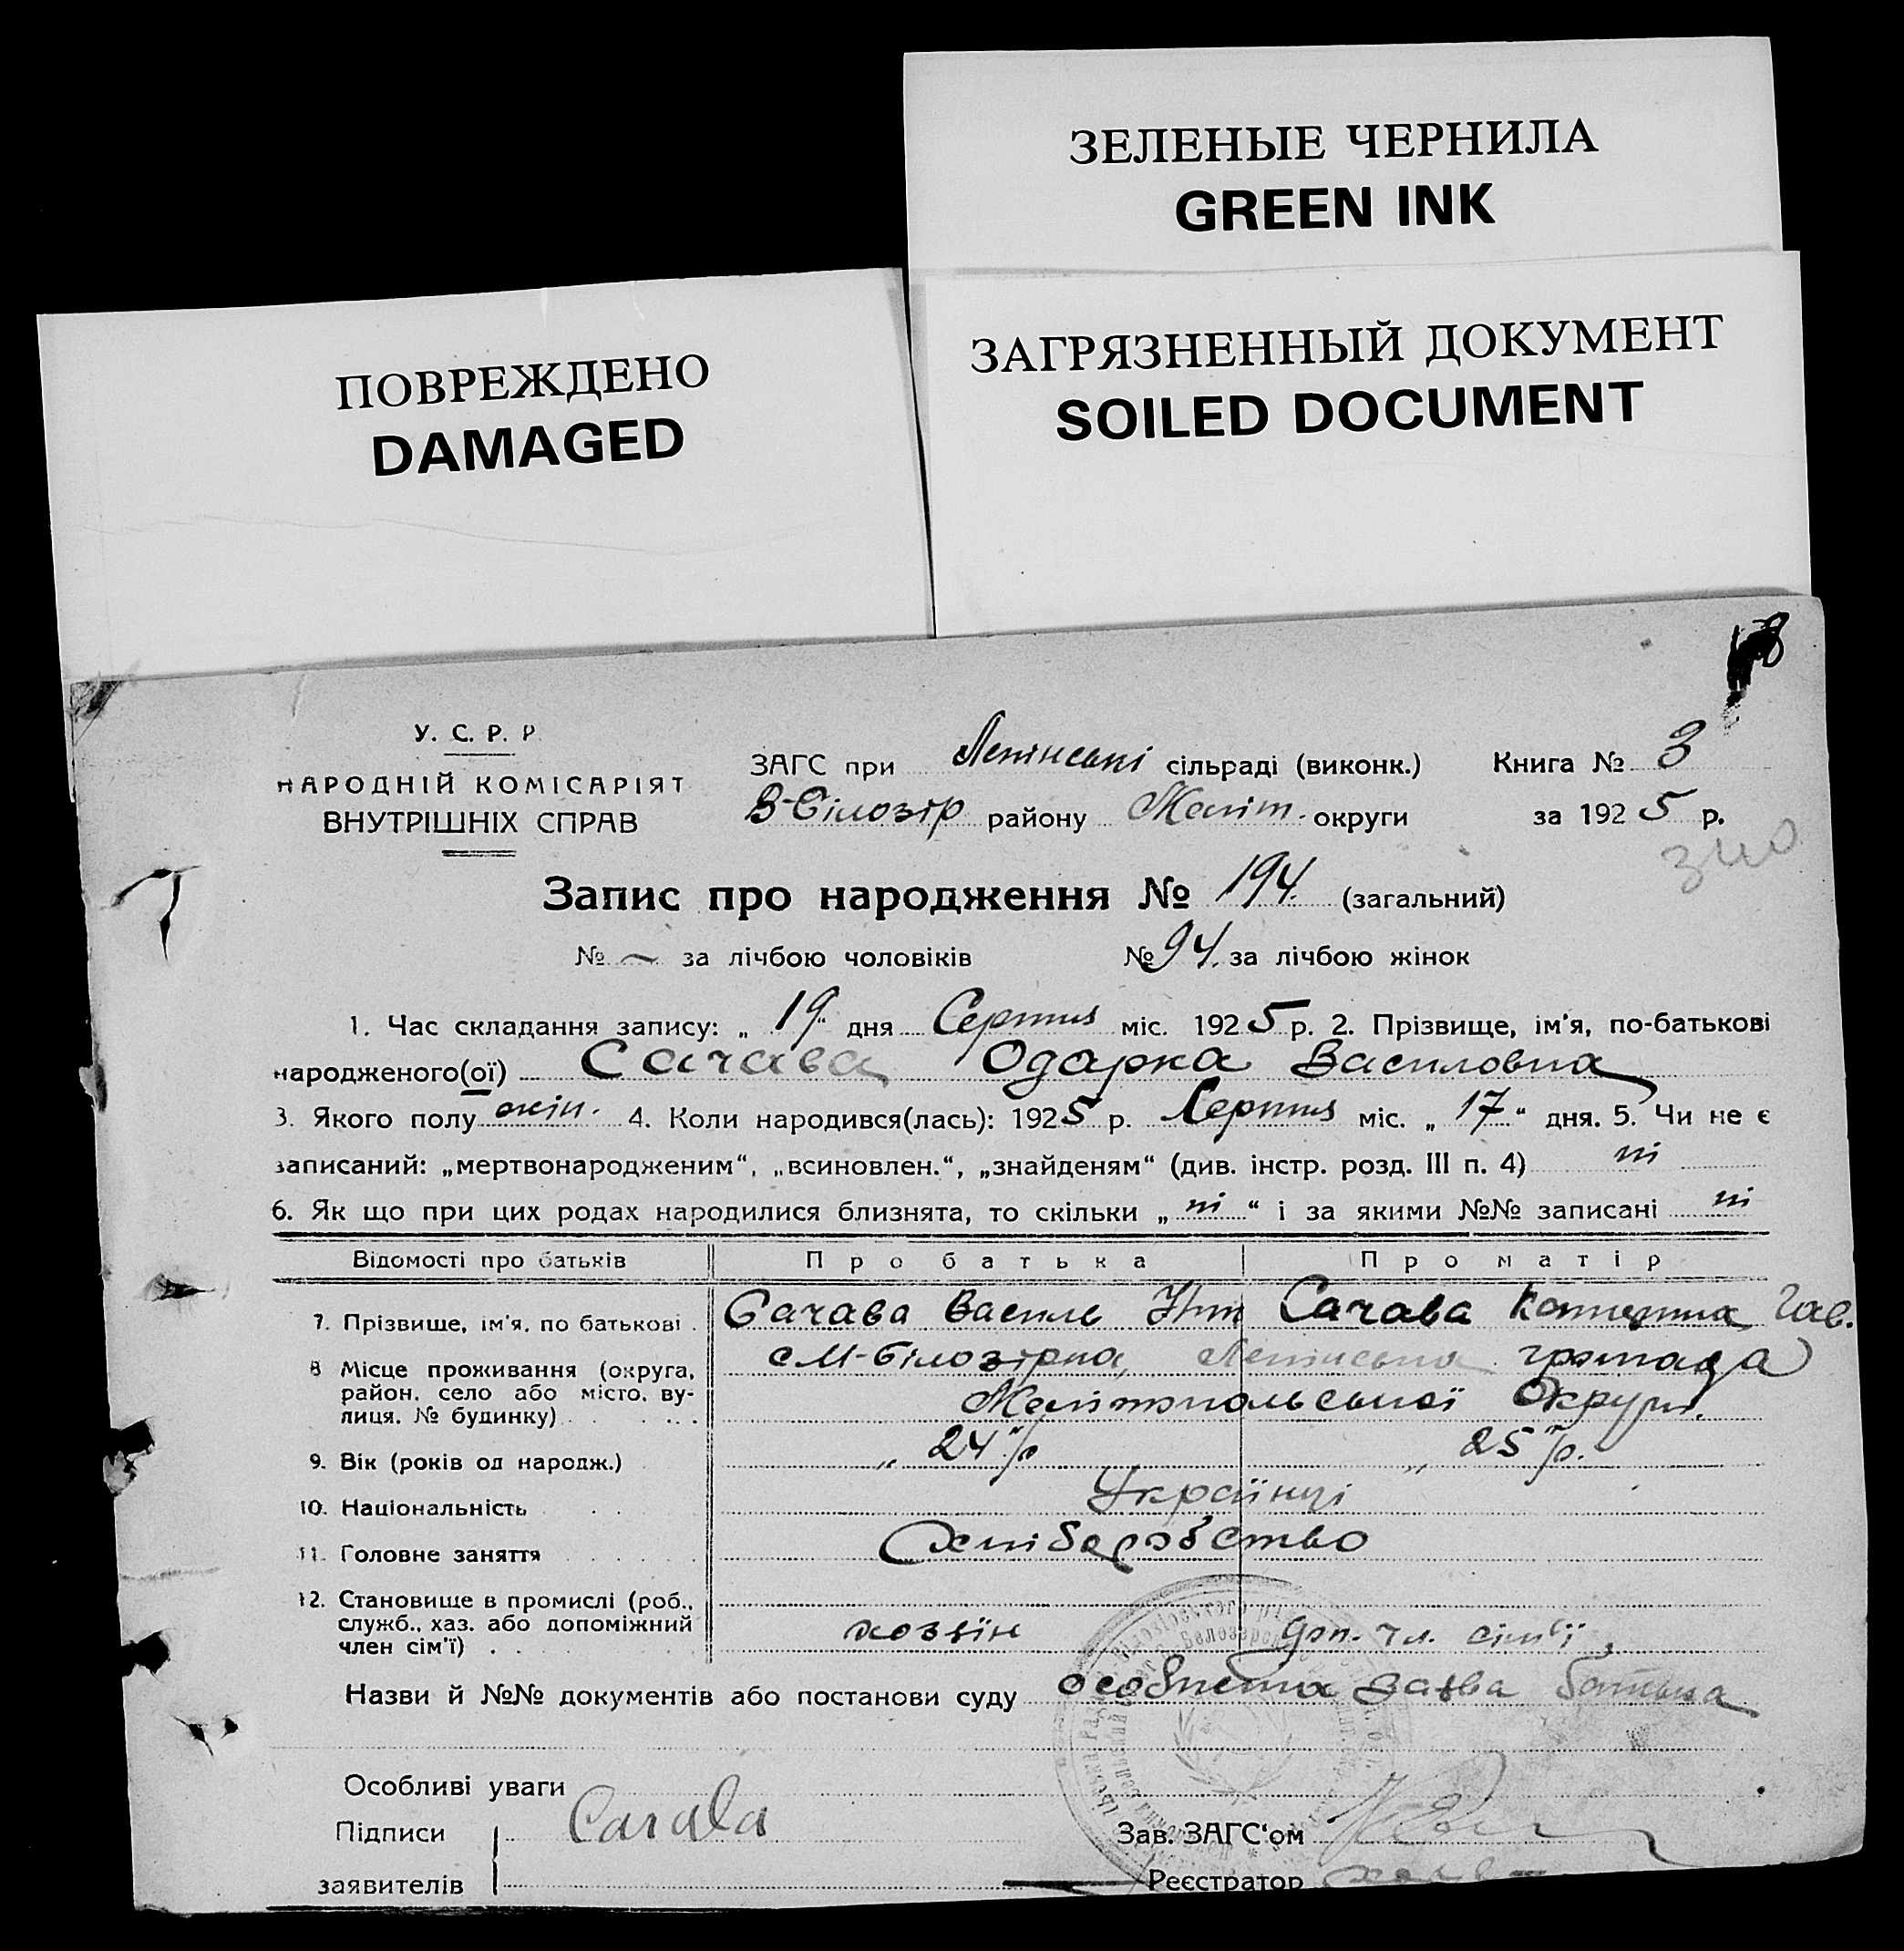 ЗЕЛЕНЫЕ ЧЕРНИЛА
GREEN INK
ПОВРЕЖДЕНО
DAMAGED
ЗАГРЯЗНЕННЫЙ ДОКУМЕНТ
SOILED DOCUMENT
У. С. Р. Р.
НАРОДНІЙ КОМІСАРІЯТ
ВНУТРІШНІХ СПРАВ
ЗАГС при Ленінські сільраді (виконк.) Книга № 3
В-Білозір району Меліт. округи за 1925 р.
Запис про народження № 194. (загальний)
№ — за лічбою чоловіків № 94. за лічбою жінок
1. Час складання запису: „ 19 “ дня Серпня міс. 1925 р. 2. Прізвище, ім'я, по-батькові
народженого(ої) Сачава Одарка Василовна
3. Якого полу жін. 4. Коли народився(лась): 1925 р. Серпня міс. „ 17 “ дня. 5. Чи не є
записаний: „мертвонародженим“, „всиновлен.“, „знайденям“ (див. інстр. розд. III п. 4) ні
6. Як що при цих родах народилися близнята, то скільки „ ні “ і за якими №№ записані ні
Відомості про батьків Про батька Про матір
7. Прізвище, ім'я, по батькові Сачава Василь Сачава Катерина Гав.
8 Місце проживання (округа, район, село або місто, вулиця, № будинку) с М-Білозірка, Ленінська громада
Мелітопольської Округи.
9. Вік (років од народж.) „ 24 „ 25
10. Національність Українці
11. Головне заняття Хліборобство
12. Становище в промислі (роб., служб., хаз. або допоміжний член сім'ї) хозяїн доп. чл. сім'ї
Назви й №№ документів або постанови суду особиста заява батька
Особливі уваги
Підписи Сачава Зав. ЗАГС'ом
заявителів Реєстратор